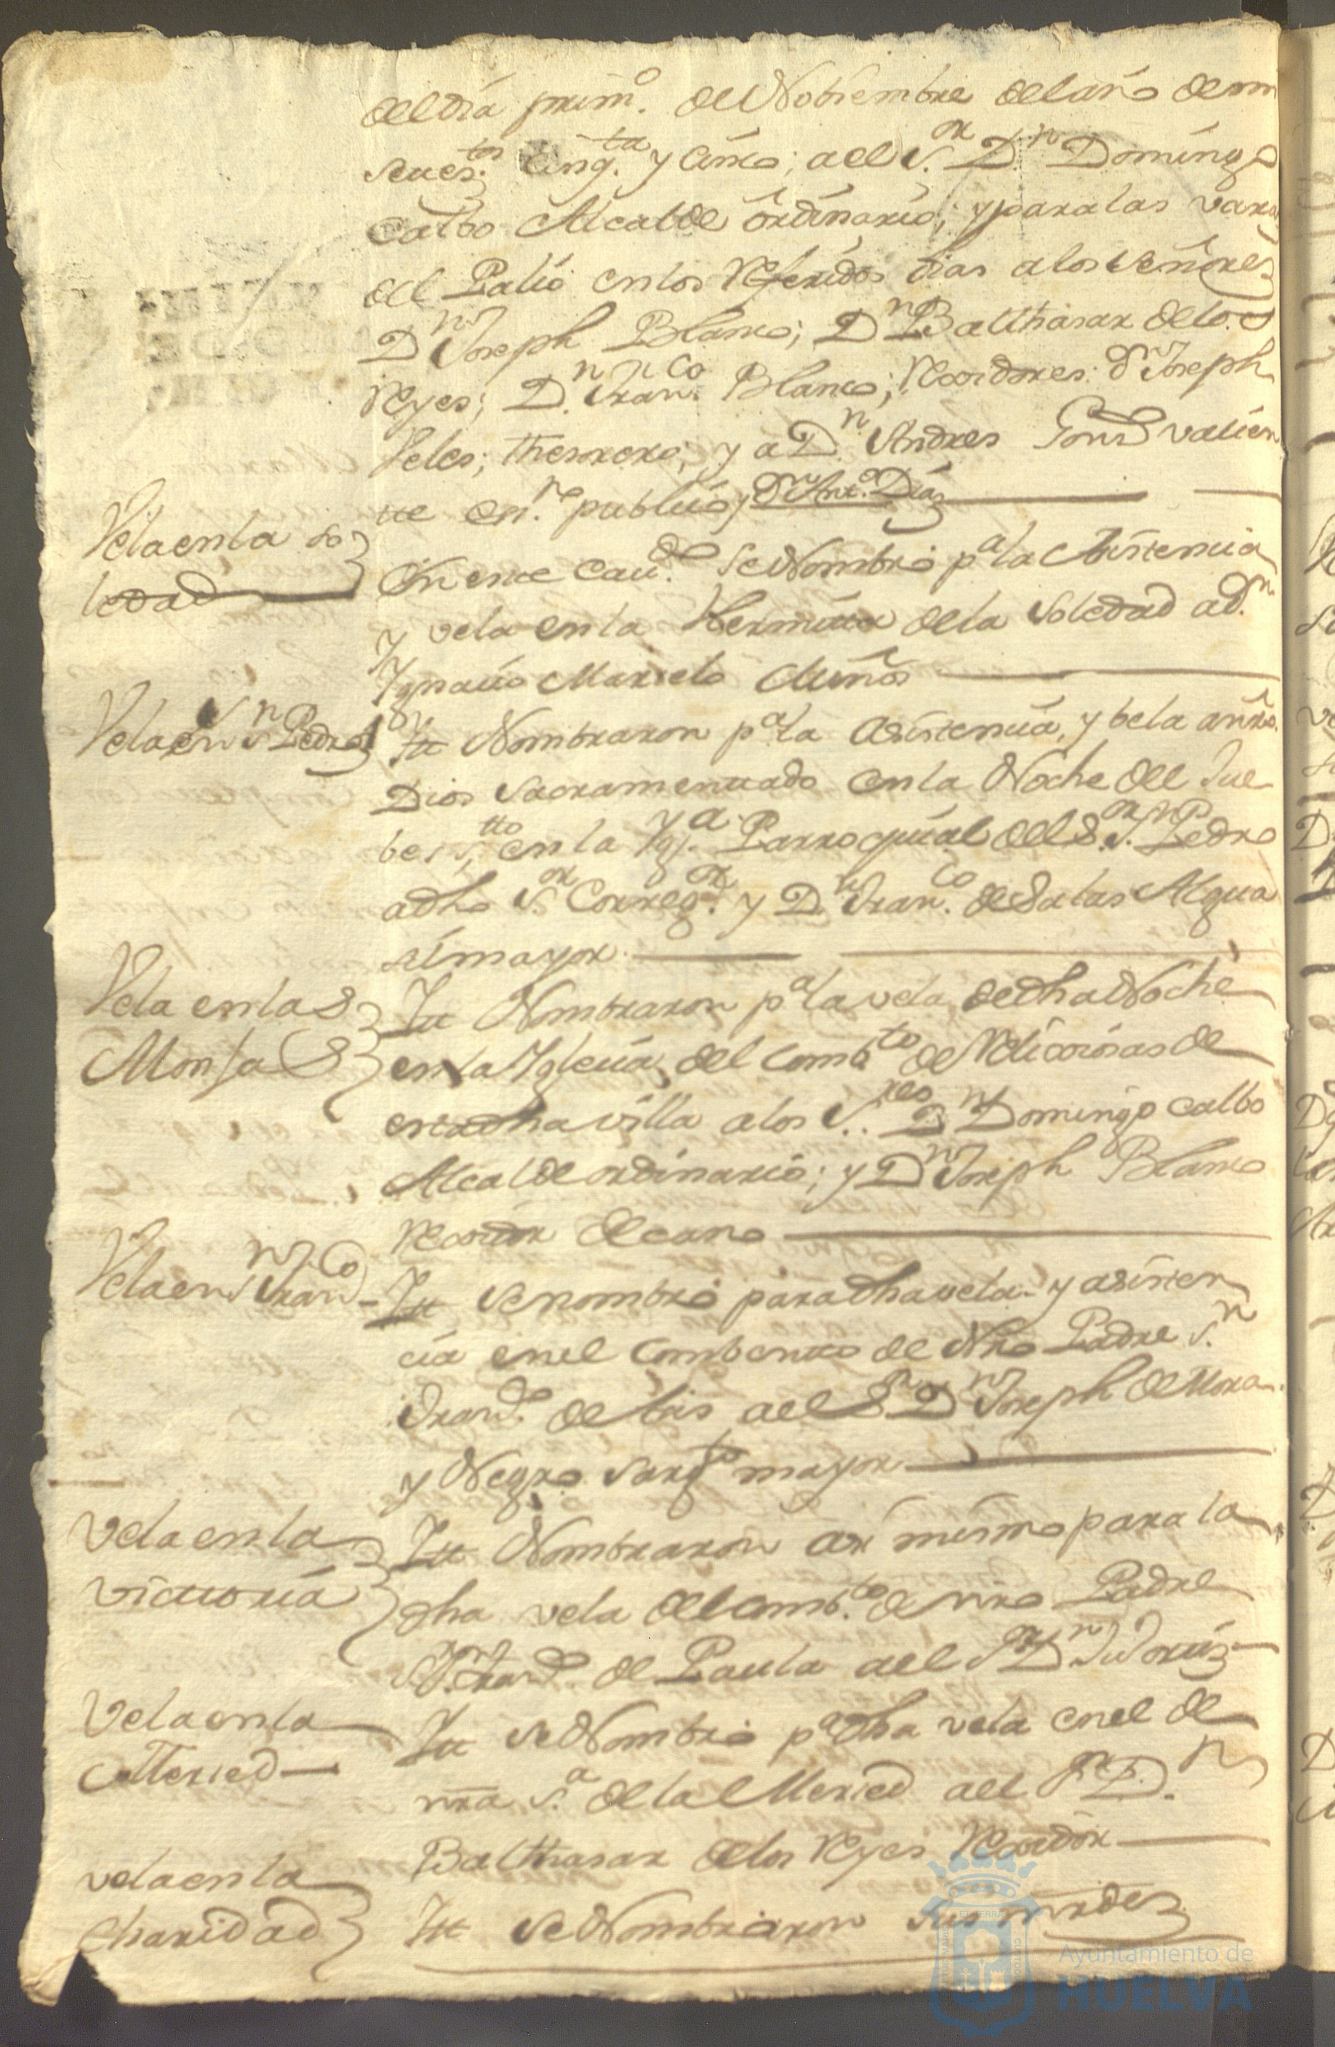 del día prim.º de Nobiembre del año de mil
setes.tos Cinq.ta y Cinco; a el S.or D.n Domingo
Calbo Alcalde ordinario; y para las varas
del Palio en los referidos dias a los señores
D.n Joseph Blanco; D.n Balthasar de los
Reyes; D.n Fran.co Blanco; Rexidores: D.n Joseph
thesorero; y a D.n Andres Gonz valien
te es.no publico y D.n Ant.o Diaz
Vela en la So
ledad
En este Cav.do se Nombró p.a la Asistencia
y vela en la Hermita de la Soledad a D.n
Ygnacio Marcelo Muñoz
Vela en S.n Pedro
Itt Nombraron p.a la asistencia, y bela a nro.
Dios Sacramentado en la Noche del Jue
bes s.tto en la Ygl.a Parroquial del S.or S.n Pedro
a dho S.or Correg.or y D.n Fran.co de Salas Algua
sil mayor
Vela en las
Monjas
Itt Nombraron p.a la vela de dha Noche
en la Yglecia del Comb.to de Relixiosas de
esta dha villa a los S.res D.n Domingo Calbo
Alcalde ordinario; y D.n Joseph Blanco
Rexidor decano
Vela en S.n Fran.co
Itt se nombró para dha vela y asisten
cia en el Combento de Nro Padre S.n
Fran.co de Asis a el S.or D.n Joseph de Mora
y Negro Sarg.to mayor
Vela en la
Victoria
Itt Nombraron asi mismo para la
dha vela del Comb.to de nro Padre
S.n Fran.co de Paula a el S.or D.n
Vela en la
Merced
Itt se Nombró p.a dha vela en el de
nra S.a de la Merced a el S.or D.n
Balthasar de los Reyes Rexidor
vela en la
Charidad
Itt se Nombraron sus mrdes
Ayuntamiento de
HUELVA